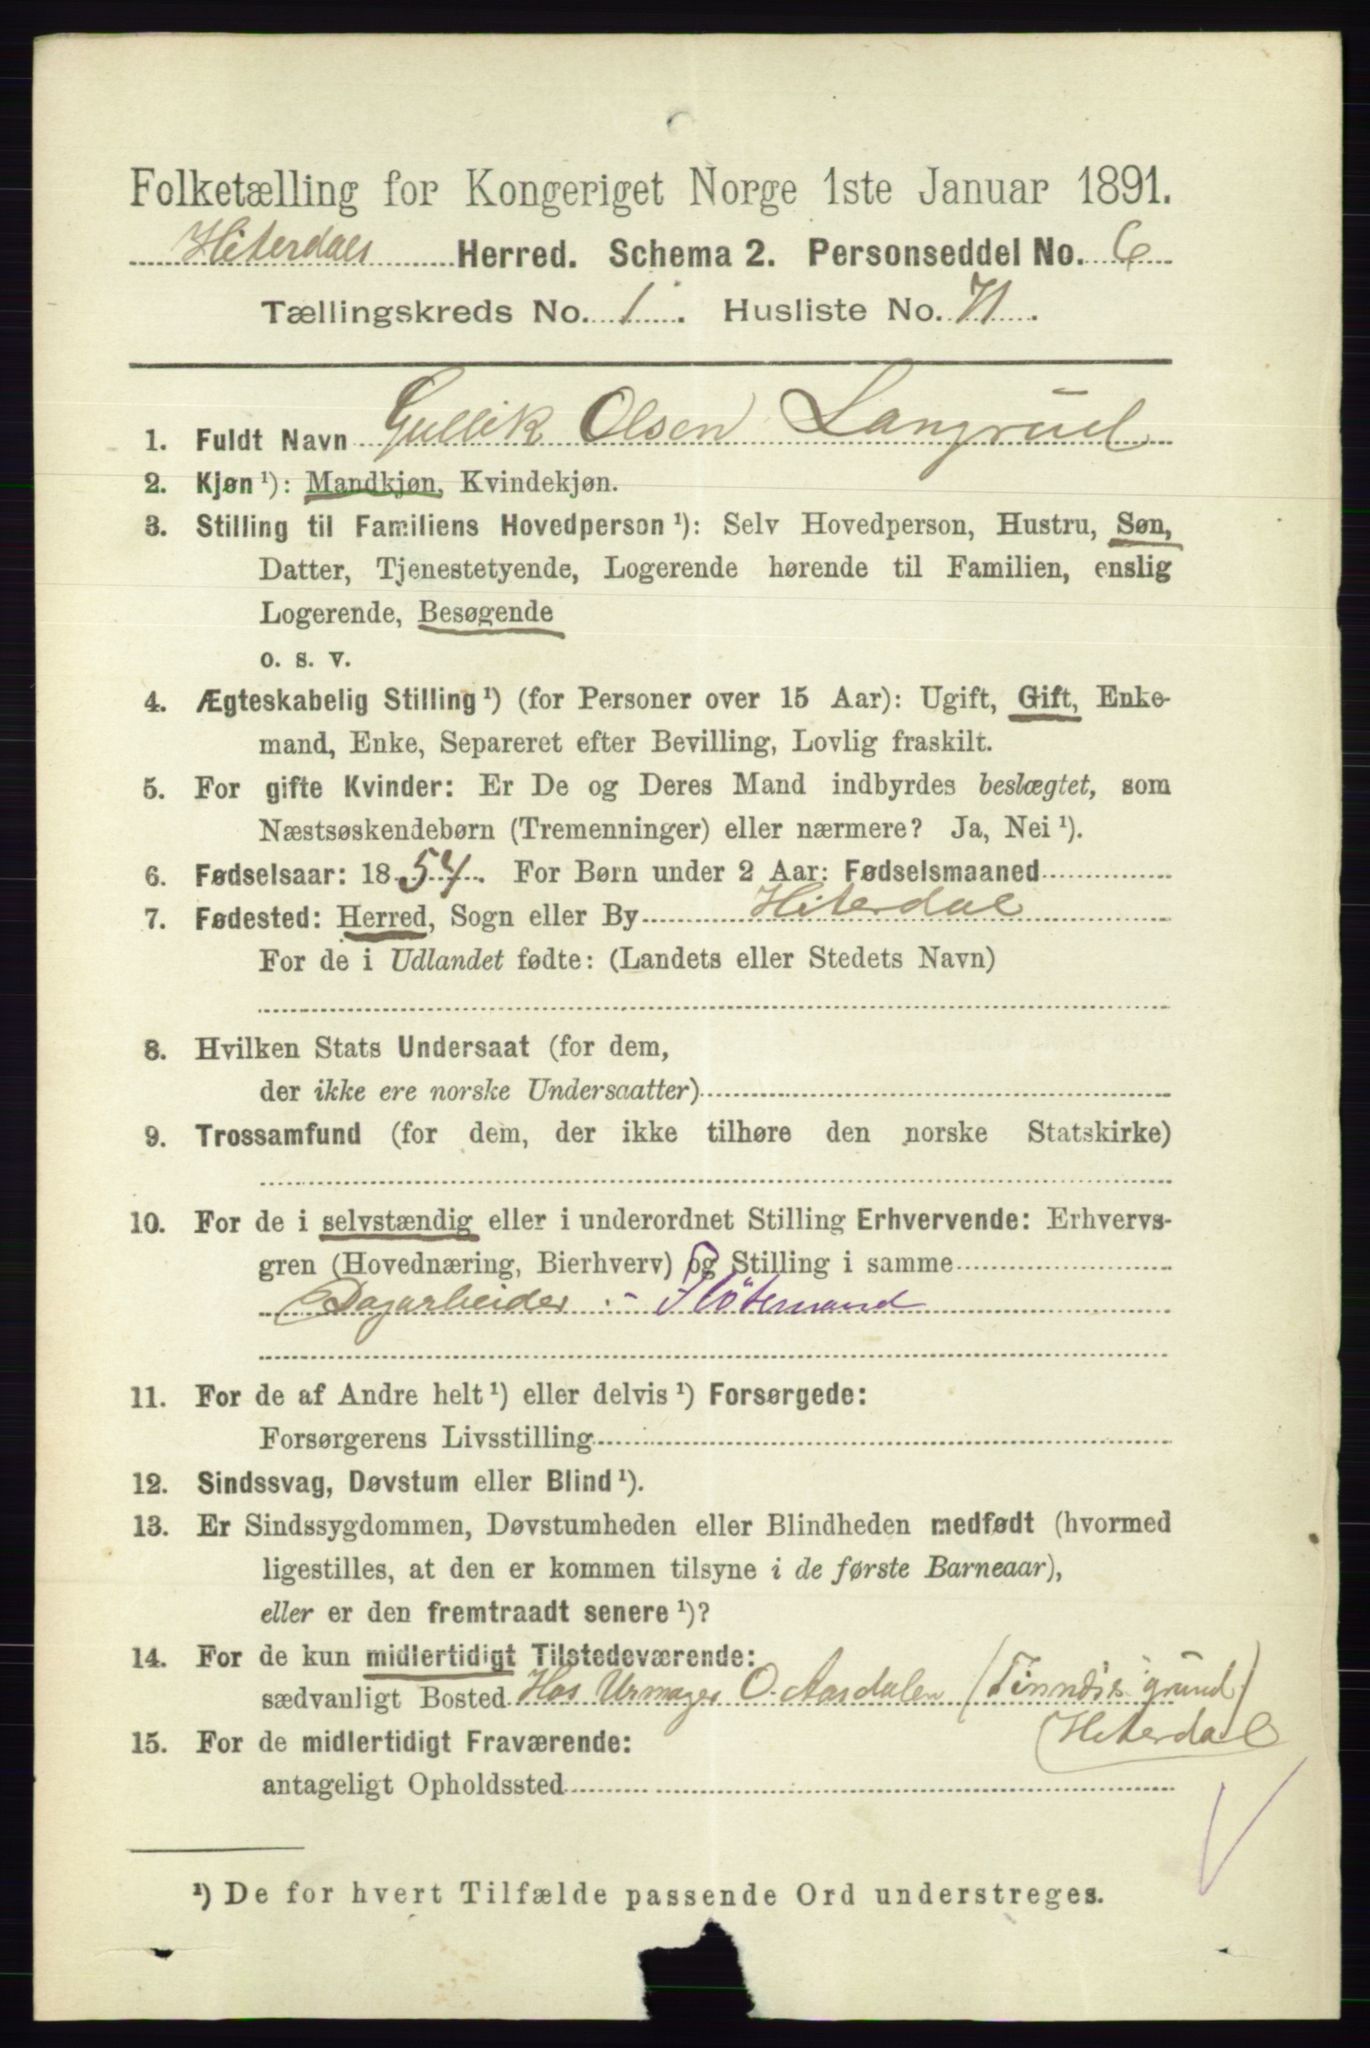 Folketælling for Kongeriget Norge 1ste Januar 1891.
Hiterdals Herred. Schema 2. Personseddel No. 6
Tællingskreds No. 1. Husliste No. 71.
1. Fuldt Navn Gullik Olsen Langrud
2. Kjøn ¹): Mandkjøn, Kvindekjøn.
3. Stilling til Familiens Hovedperson ¹): Selv Hovedperson, Hustru, Søn,
Datter, Tjenestetyende, Logerende hørende til Familien, enslig
Logerende, Besøgende
o. s. v.
4. Ægteskabelig Stilling ¹) (for Personer over 15 Aar): Ugift, Gift, Enke-
mand, Enke, Separeret efter Bevilling, Lovlig fraskilt.
5. For gifte Kvinder: Er De og Deres Mand indbyrdes beslægtet, som
Næstsøskendebørn (Tremenninger) eller nærmere? Ja, Nei ¹).
6. Fødselsaar: 1854. For Børn under 2 Aar: Fødselsmaaned
7. Fødested: Herred, Sogn eller By Hiterdal
For de i Udlandet fødte: (Landets eller Stedets Navn)
8. Hvilken Stats Undersaat (for dem,
der ikke ere norske Undersaatter)
9. Trossamfund (for dem, der ikke tilhøre den norske Statskirke)
10. For de i selvstændig eller i underordnet Stilling Erhvervende: Erhvervs-
gren (Hovednæring, Bierhverv) og Stilling i samme
Dagarbeider - Flötemand
11. For de af Andre helt ¹) eller delvis ¹) Forsørgede:
Forsørgerens Livsstilling
12. Sindssvag, Døvstum eller Blind ¹).
13. Er Sindssygdommen, Døvstumheden eller Blindheden medfødt (hvormed
ligestilles, at den er kommen tilsyne i de første Barneaar),
eller er den fremtraadt senere ¹)?
14. For de kun midlertidigt Tilstedeværende:
sædvanligt Bosted Hos Urmager O. Aasdalen (Tinnæs grund)
Hiterdal
15. For de midlertidigt Fraværende:
antageligt Opholdssted
¹) De for hvert Tilfælde passende Ord understreges.